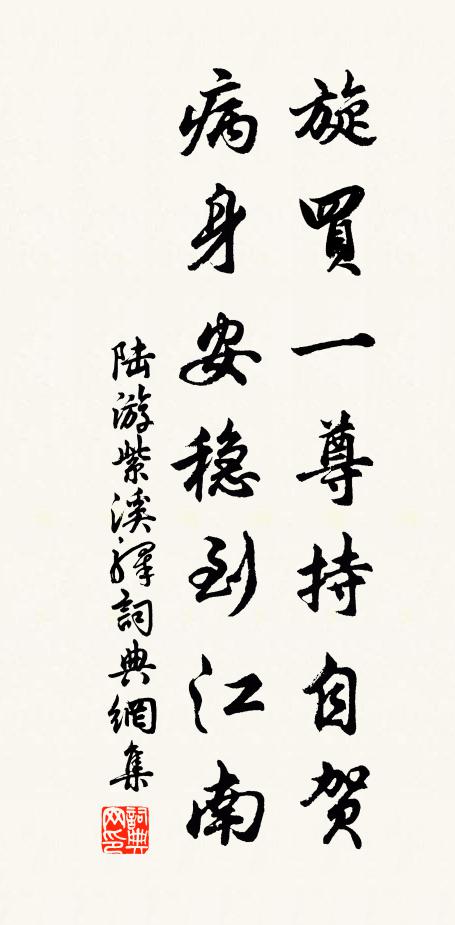 旋買一尊持自賀
病身安稳到江南
陆游紫溪驛詞典網集
詞典
网印